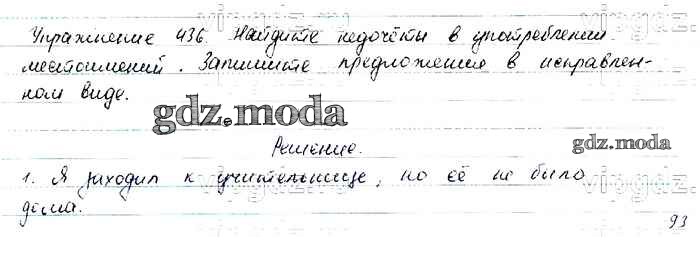 Упражнение 436. Найдите недочёты в употреблении
местоимений. Запишите предложения в исправлен-
ном виде.
gdz.moda
Решение.
gdz.moda
1. Я заходил к учительнице, но её не было
дома.
93